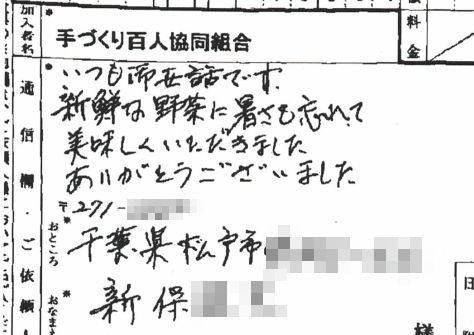 加入者名
手づくり百人協同組合
料金
通信欄・ご依頼人
いつも而世話です。
新鮮な野菜に暑さも忘れて
美味しくいただきました
ありがとうございました
〒271-
おところ
千葉県松戸市
おなまえ
新保
様